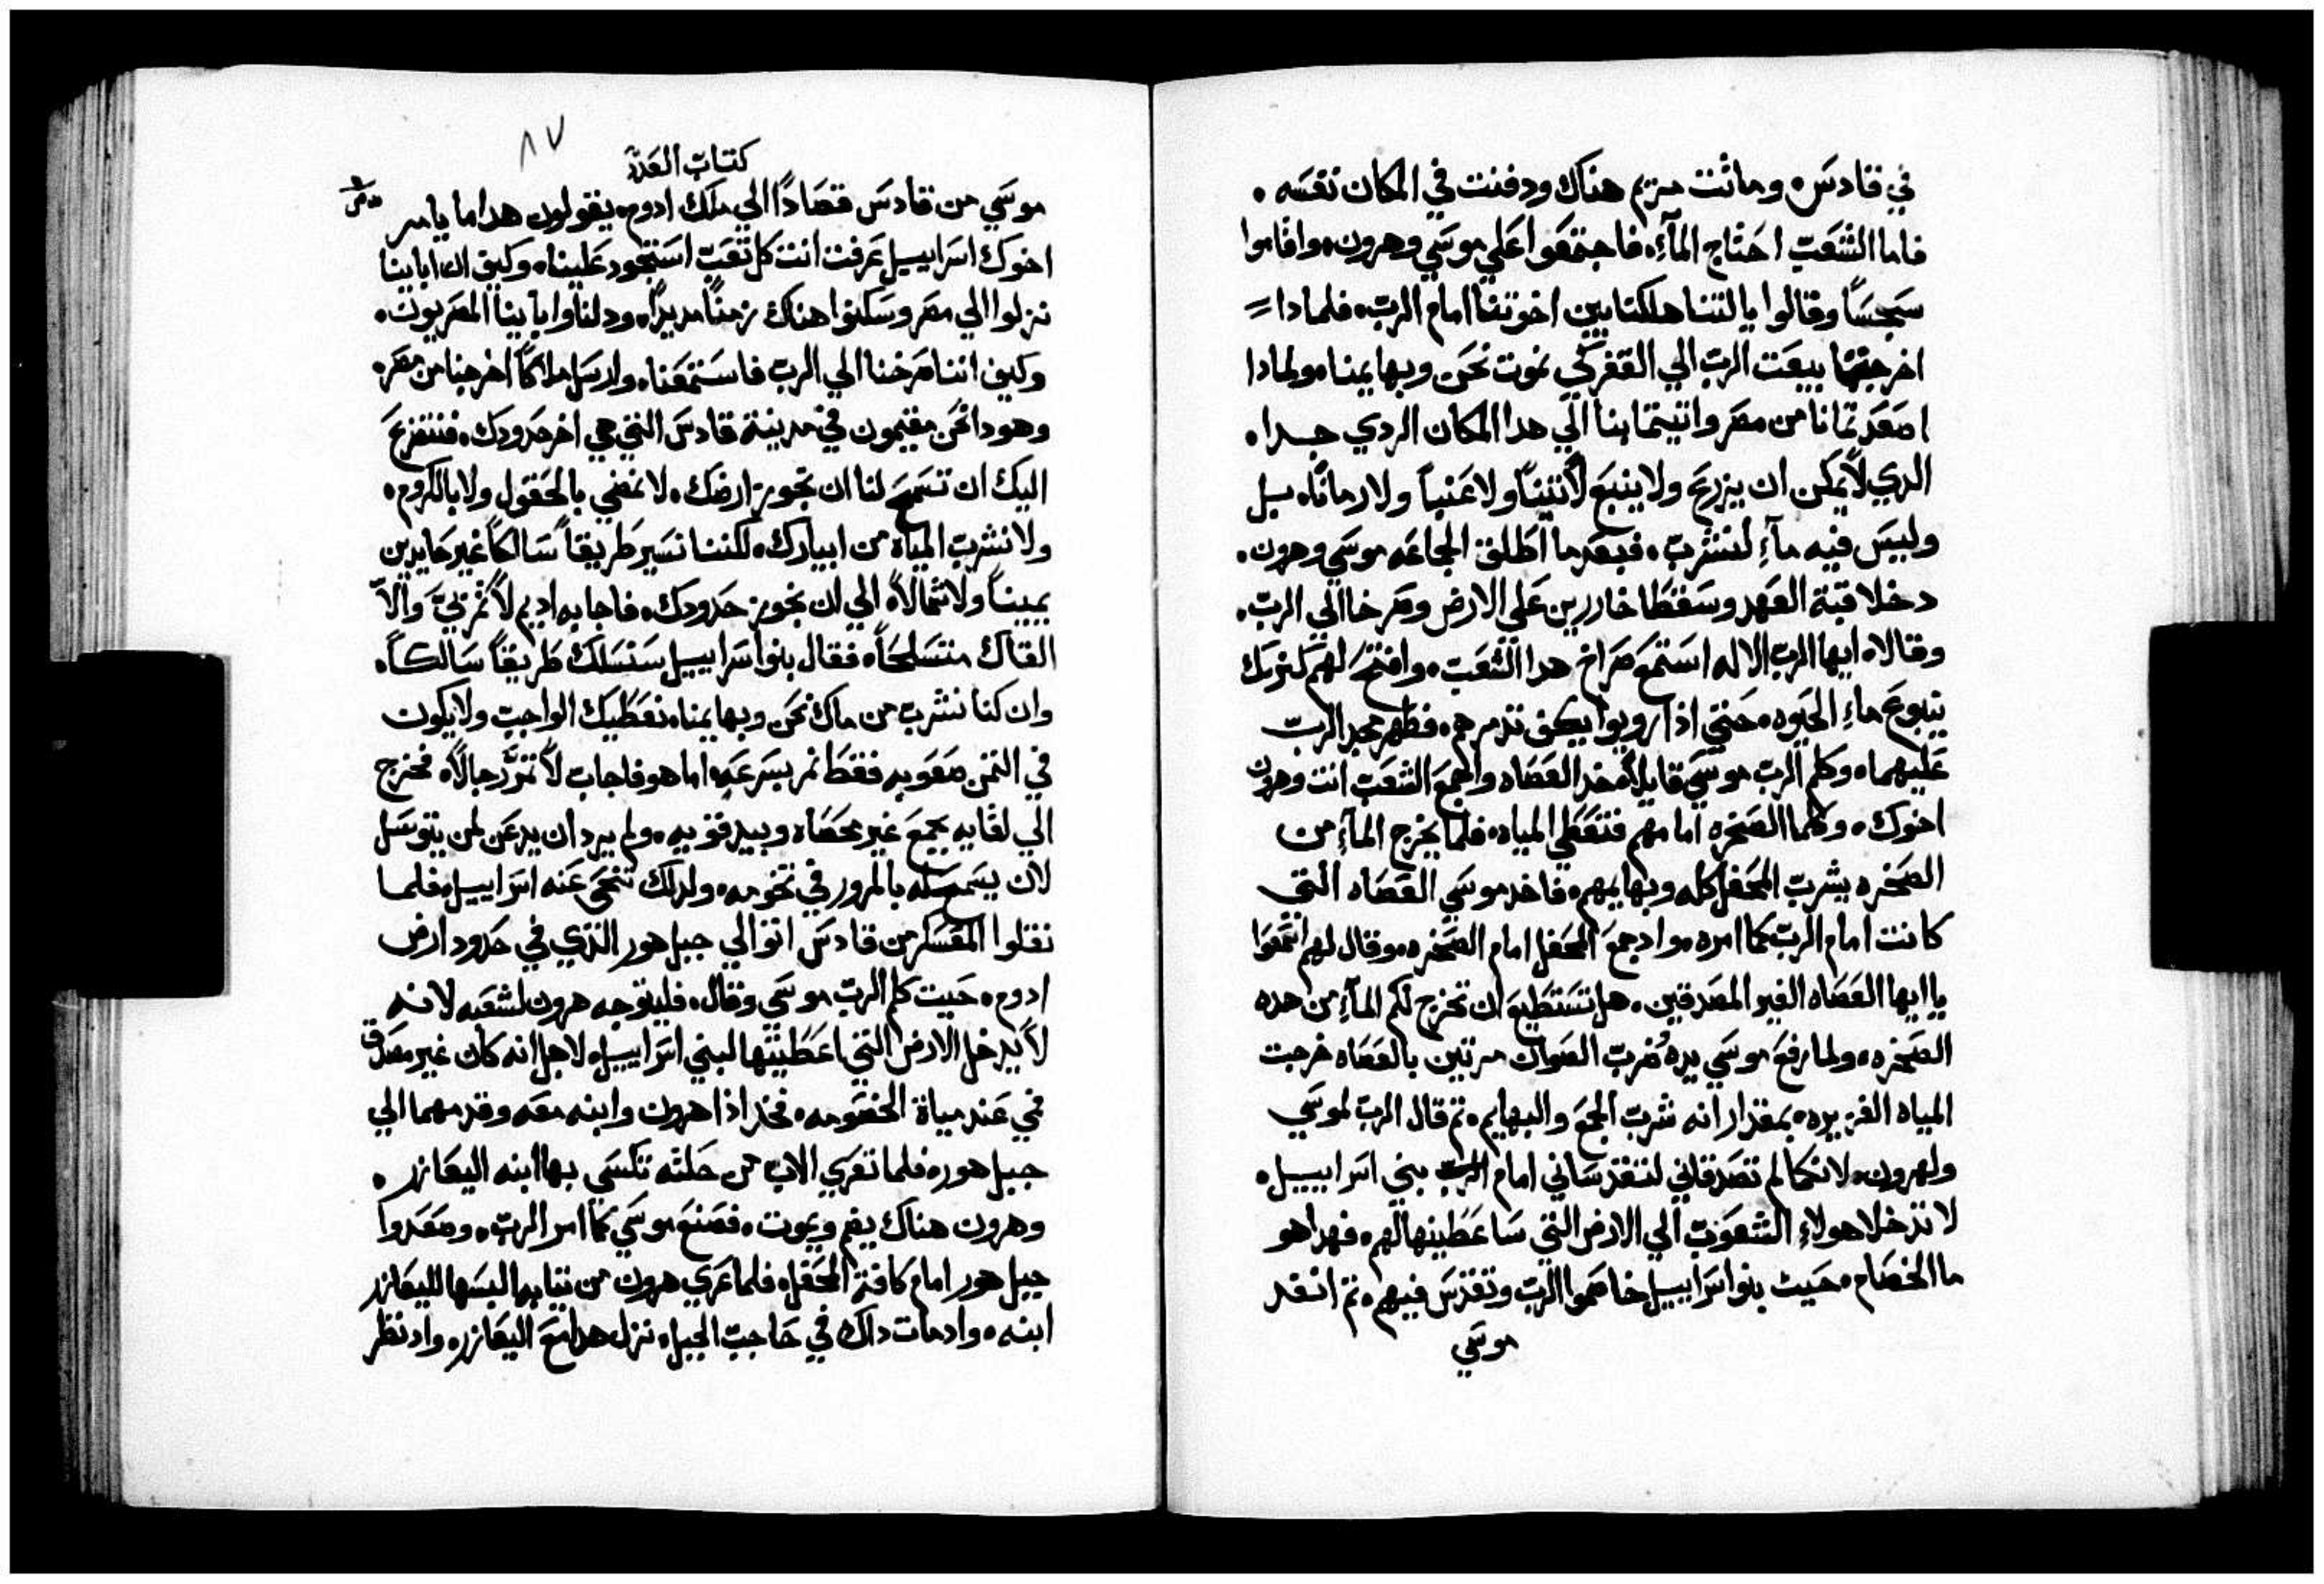 في قادس ه وماتت مريم هناك ودفنت في المكان نفسه ه
فاما الشعب احتاج المآء ه فاجتمعوا علي موسي وهرون ه واقاموا
سجسًا وقالوا ياليتنا هلكنا بين اخوتنا امام الرب ه فلمادا
اخرجتما بيعت الرب الي القفر كي نموت نحن وبهايمنا ه ولمادا
اصعدتمانا من مصر واتيتما بنا الي هدا المكان الردي جدا ه
الدي لا يمكن ان يزرع ولا ينبع لا تينًا ولا عنباً ولا رمانًا ه بل
وليس فيه مآءٍ لنشرب ه فبعدما اطلق الجماعه موسي وهرون ه
دخلا قبة العهد وسقطا خاررين علي الارض وصرخا الي الرب ه
وقالا ه ايها الرب الاله استمع صراخ هدا الشعب ه وافتح لهم كنزك
ينبوع ماءِ الحيوه ه حتي اذا رويوا يكف تدمرهم ه فظهر مجد الرب
عليهما ه وكلم الرب موسي قايلاً ه خد العصاه واجمع الشعب انت وهرون
اخوك ه وكلما الصخره امامهم فتعطي المياه ه فلما يخرج المآءِ من
الصخره يشرب المحفل كله وبهايمهم ه فاخد موسي العصاه التي
كانت امام الرب كما امره ه واد جمع المحفل امام الصخره ه وقال لهم اسمعوا
يا ايها العصاه الغير المصدقين ه هل نستطيع ان نخرج لكم المآءِ من هده
الصخره ه ولما رفع موسي يدهُ ضرب الصوان مرتين بالعصاه خرجت
المياه الغزيره ه بمقدار انه شرب الجمع والبهايم ه تم قال الرب لموسي
ولهرون ه لانكما لم تصدقاني لتقدساني امام الرب بني اسراييل ه
لا تدخلا هولاءِ الشعوب الي الارض التي ساعطينها لهم ه فهدا هو
ما الخصام ه حيث بنو اسراييل خاصموا الرب وتقدس فيهم ه تم انفد
موسي
٨٧
كتاب العدد
موسي من قادس قصادًا الي ملك ادوم ه يقولون هدا ما يامر
اخوك اسراييل عرفت انت كل تعب استحود علينا ه وكيف ان ابايينا
نزلوا الي مصر وسكنوا هناك زمنًا مديدًا ه ودلنا وابايينا المصريون ه
وكيف اننا صرخنا الي الرب فاستمعنا ه وارسل ملاكًا اخرجنا من مصر ه
وهودا نحن مقيمون في مدينة قادس التي هي اخر حدودك ه فنتضرع
اليك ان تسمح لنا ان نجوز ارضك ه لا نمضي بالحقول ولا بالكروم ه
ولا نشرب المياة من ابيارك ه لكننا نسير طريقاً سالكاً غير حايدين
يميناً ولا شمالاً ه الي ان نجوز حدودك ه فاجابه اديم لا تمر بيَّ والاَّ
القاك متسلحًا ه فقال بنو اسراييل سنسلك طريقًا سالكًا ه
وان كنا نشرب من ماك نحن وبهايمنا ه نعطيك الواجب ولا يكون
في التمن صعوبه فقط نمر بسرعه ه اما هو فاجاب لا تمرَّ رجالاً ه فخرج
الي لقايه بجمع غير محصاه وبيد قويه ه ولم يرد ان يدعن لمن يتوسل
لان يسمح له بالمرور في تخومه ه ولدلك تنحي عنه اسراييل ه فلما
نقلوا المعسكر من قادس اتوا الي جبل هور الذي في حدود ارض
ادوم ه حيت كلم الرب موسي وقال ه فليتوجه هرون لشعبه لانه
لا يدخل الارض التي اعطيتها لبني اسراييل ه لاجل انه كان غير مصدق
في عند مياة الخصومه ه فخد اذا هرون وابنه معه وقدمهما الي
جبل هور ه فلما تعري الاب من حلته تكسي بها ابنه اليعازر ه
وهرون هناك يضم ويموت ه فصنع موسي كما امر الرب ه وصعدوا
جبل هور امام كافة المحفل ه فلما عري هرون من تيابه البسها لليعازر
ابنه ه واد مات داك في حاجب الجبل ه نزل هدا مع اليعازر ه واد نظر